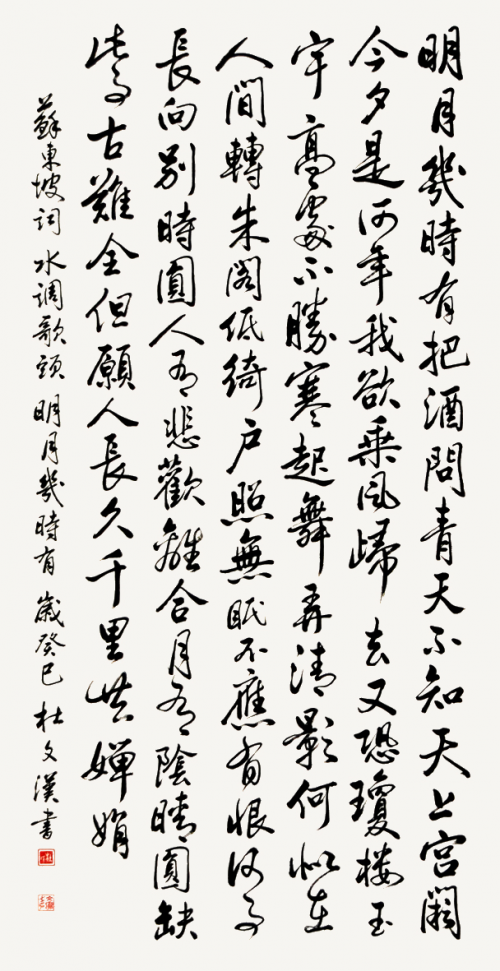 明月幾時有把酒問青天不知天上宮闕
今夕是何年我欲乘風歸去又恐瓊楼玉
宇高處不勝寒起舞弄清影何似在
人間轉朱閣低綺户照無眠不應有恨何事
長向别時圓人有悲歡離合月有陰晴圓缺
此事古難全但願人長久千里共嬋娟
蘇東坡词 水调歌頭 明月幾時有 歲癸巳 杜文漢書